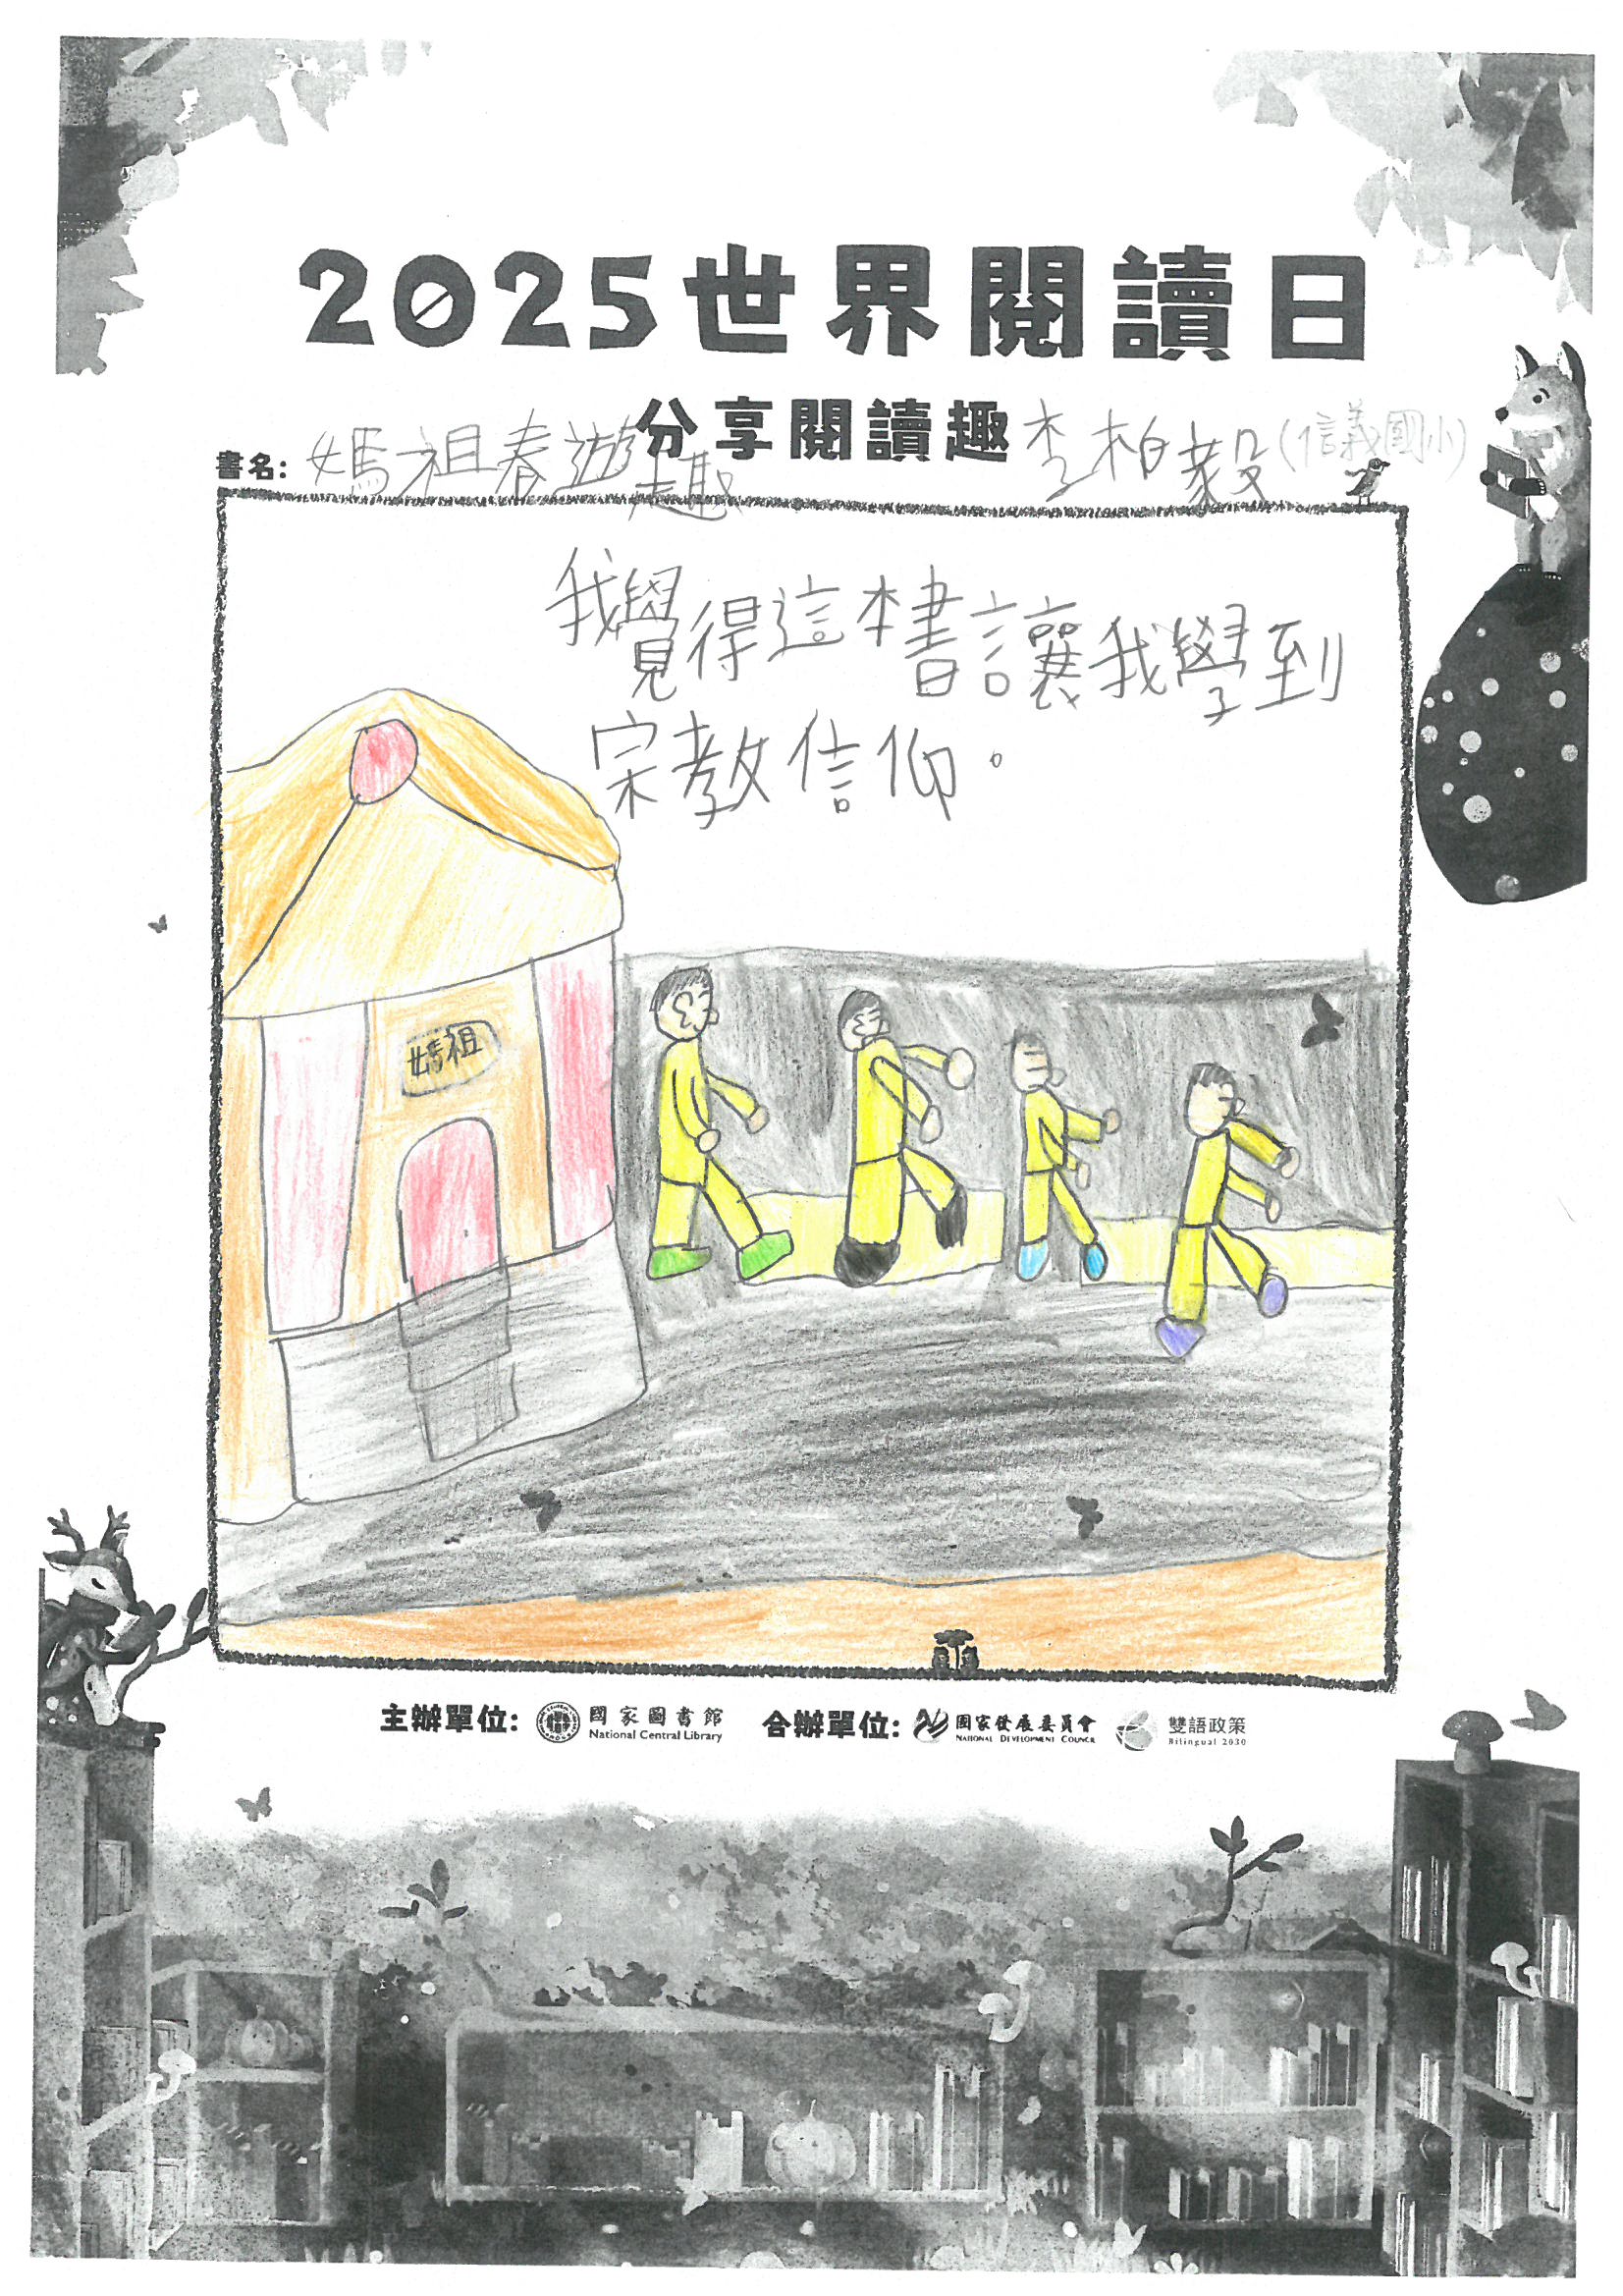 2025世界閱讀日
分享閱讀趣
書名: 媽祖春遊趣 李柏毅(信義國小)
我覺得這本書讓我學到
宗教信仰。
媽祖
主辦單位: 國家圖書館 National Central Library 合辦單位: 國家發展委員會 NATIONAL DEVELOPMENT COUNCIL 雙語政策 Bilingual 2030